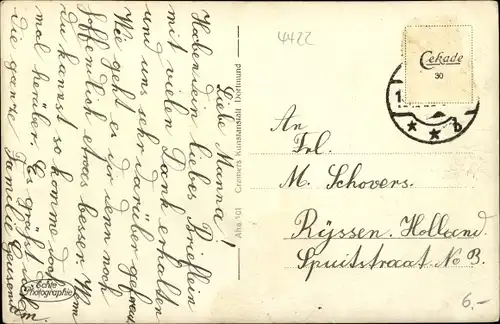 4422
Liebe Manna!
Haben dein liebes Brieflein
mit vielen Dank erhalten
und uns sehr darüber gefreut
Wie geht es dir denn noch
hoffentlich etwas besser. Wenn
du kannst so komme doch
mal herüber. Es grüßt dich
die ganze Familie
Echte
Photographie
Cramers Kunstanstalt, Dortmund
Cekade
30
b
An
Frl.
M. Schovers.
Rÿssen. Holland.
Spuitstraat No B.
6.-